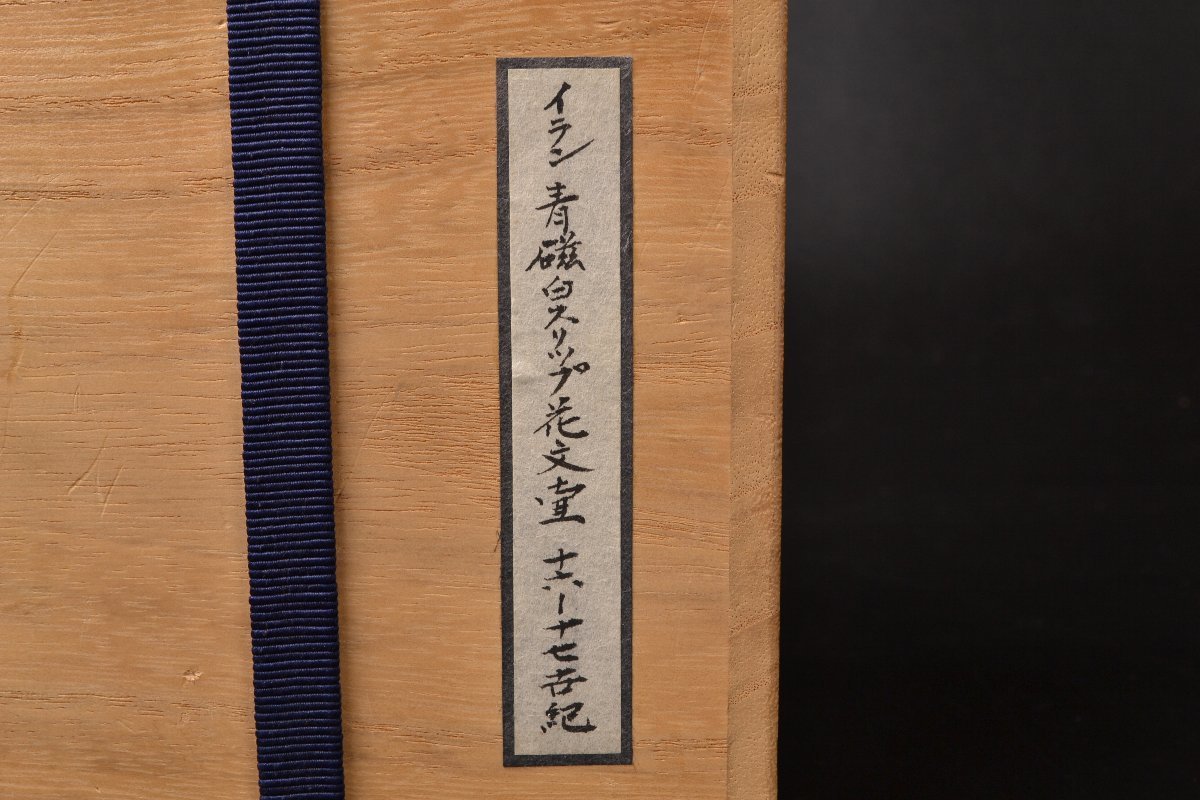 イラン 青磁白スリップ花文壷 十六ー十七世紀